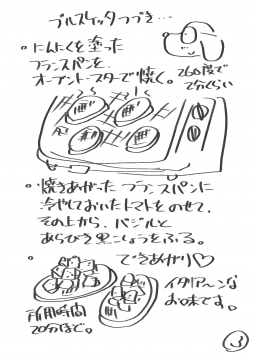 ブルスケッタつづき…
。にんにくを塗った
フランスパンを、
オーブントースターで焼く。
260度で
7分くらい
。焼きあがったフランスパンに
冷やしておいたトマトをのせて、
その上から、バジルと
あらびき黒こしょうをふる。
。できあがり♡
イタリア〜ンな
お味です。
所用時間
20分ほど。
3